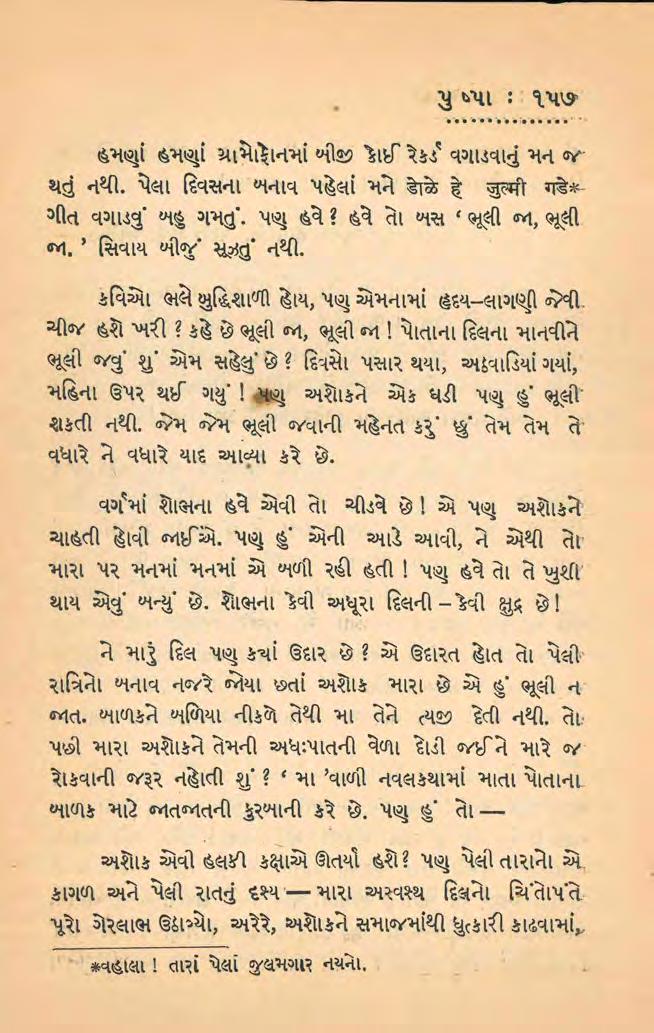 પુ ષ્પા : ૧૫૭
હમણાં હમણાં ગ્રામોફોનમાં બીજી કોઈ રેકર્ડ વગાડવાનું મન જ
થતું નથી. પેલા દિવસના બનાવ પહેલાં મને ડોળે હે जुल्मी गडे*
ગીત વગાડવું બહુ ગમતું. પણ હવે? હવે તો બસ ‘ ભૂલી જા, ભૂલી
જા. ’ સિવાય બીજું સૂઝતું નથી.
કવિઓ ભલે બુદ્ધિશાળી હોય, પણ એમનામાં હૃદય–લાગણી જેવી
ચીજ હશે ખરી ? કહે છે ભૂલી જા, ભૂલી જા ! પોતાના દિલના માનવીને
ભૂલી જવું શું એમ સહેલું છે? દિવસો પસાર થયા, અઠવાડિયાં ગયાં,
મહિના ઉપર થઈ ગયું ! પણ અશોકને એક ઘડી પણ હું ભૂલી
શકતી નથી. જેમ જેમ ભૂલી જવાની મહેનત કરું છું તેમ તેમ તે
વધારે ને વધારે યાદ આવ્યા કરે છે.
વર્ગમાં શોભના હવે એવી તો ચીડવે છે ! એ પણ અશોકને
ચાહતી હોવી જાઈએ. પણ હું એની આડે આવી, ને એથી તો
મારા પર મનમાં મનમાં એ બળી રહી હતી ! પણ હવે તો તે ખુશી
થાય એવું બન્યું છે. શોભના કેવી અધૂરા દિલની – કેવી ક્ષુદ્ર છે!
ને મારું દિલ પણ કયાં ઉદાર છે ? એ ઉદારત હોત તો પેલી
રાત્રિનો બનાવ નજરે જોયા છતાં અશોક મારા છે એ હું ભૂલી ન
જાત. બાળકને બળિયા નીકળે તેથી મા તેને ત્યજી દેતી નથી. તો
પછી મારા અશોકને તેમની અધઃપાતની વેળા દોડી જઈને મારે જ
રોકવાની જરૂર નહોતી શું ? ‘ મા ’વાળી નવલકથામાં માતા પોતાના
બાળક માટે જાતજાતની કુરબાની કરે છે. પણ હું તો —
અશોક એવી હલકી કક્ષાએ ઊતર્યા હશે? પણ પેલી તારાનો એ
કાગળ અને પેલી રાતનું દશ્ય — મારા અસ્વસ્થ દિલનો ચિંતોપંતે
પૂરો ગેરલાભ ઉઠાવ્યો, અરેરે, અશોકને સમાજમાંથી ધુત્કારી કાઢવામાં,
*વહાલા ! તારાં પેલાં જુલમગાર નયનો.